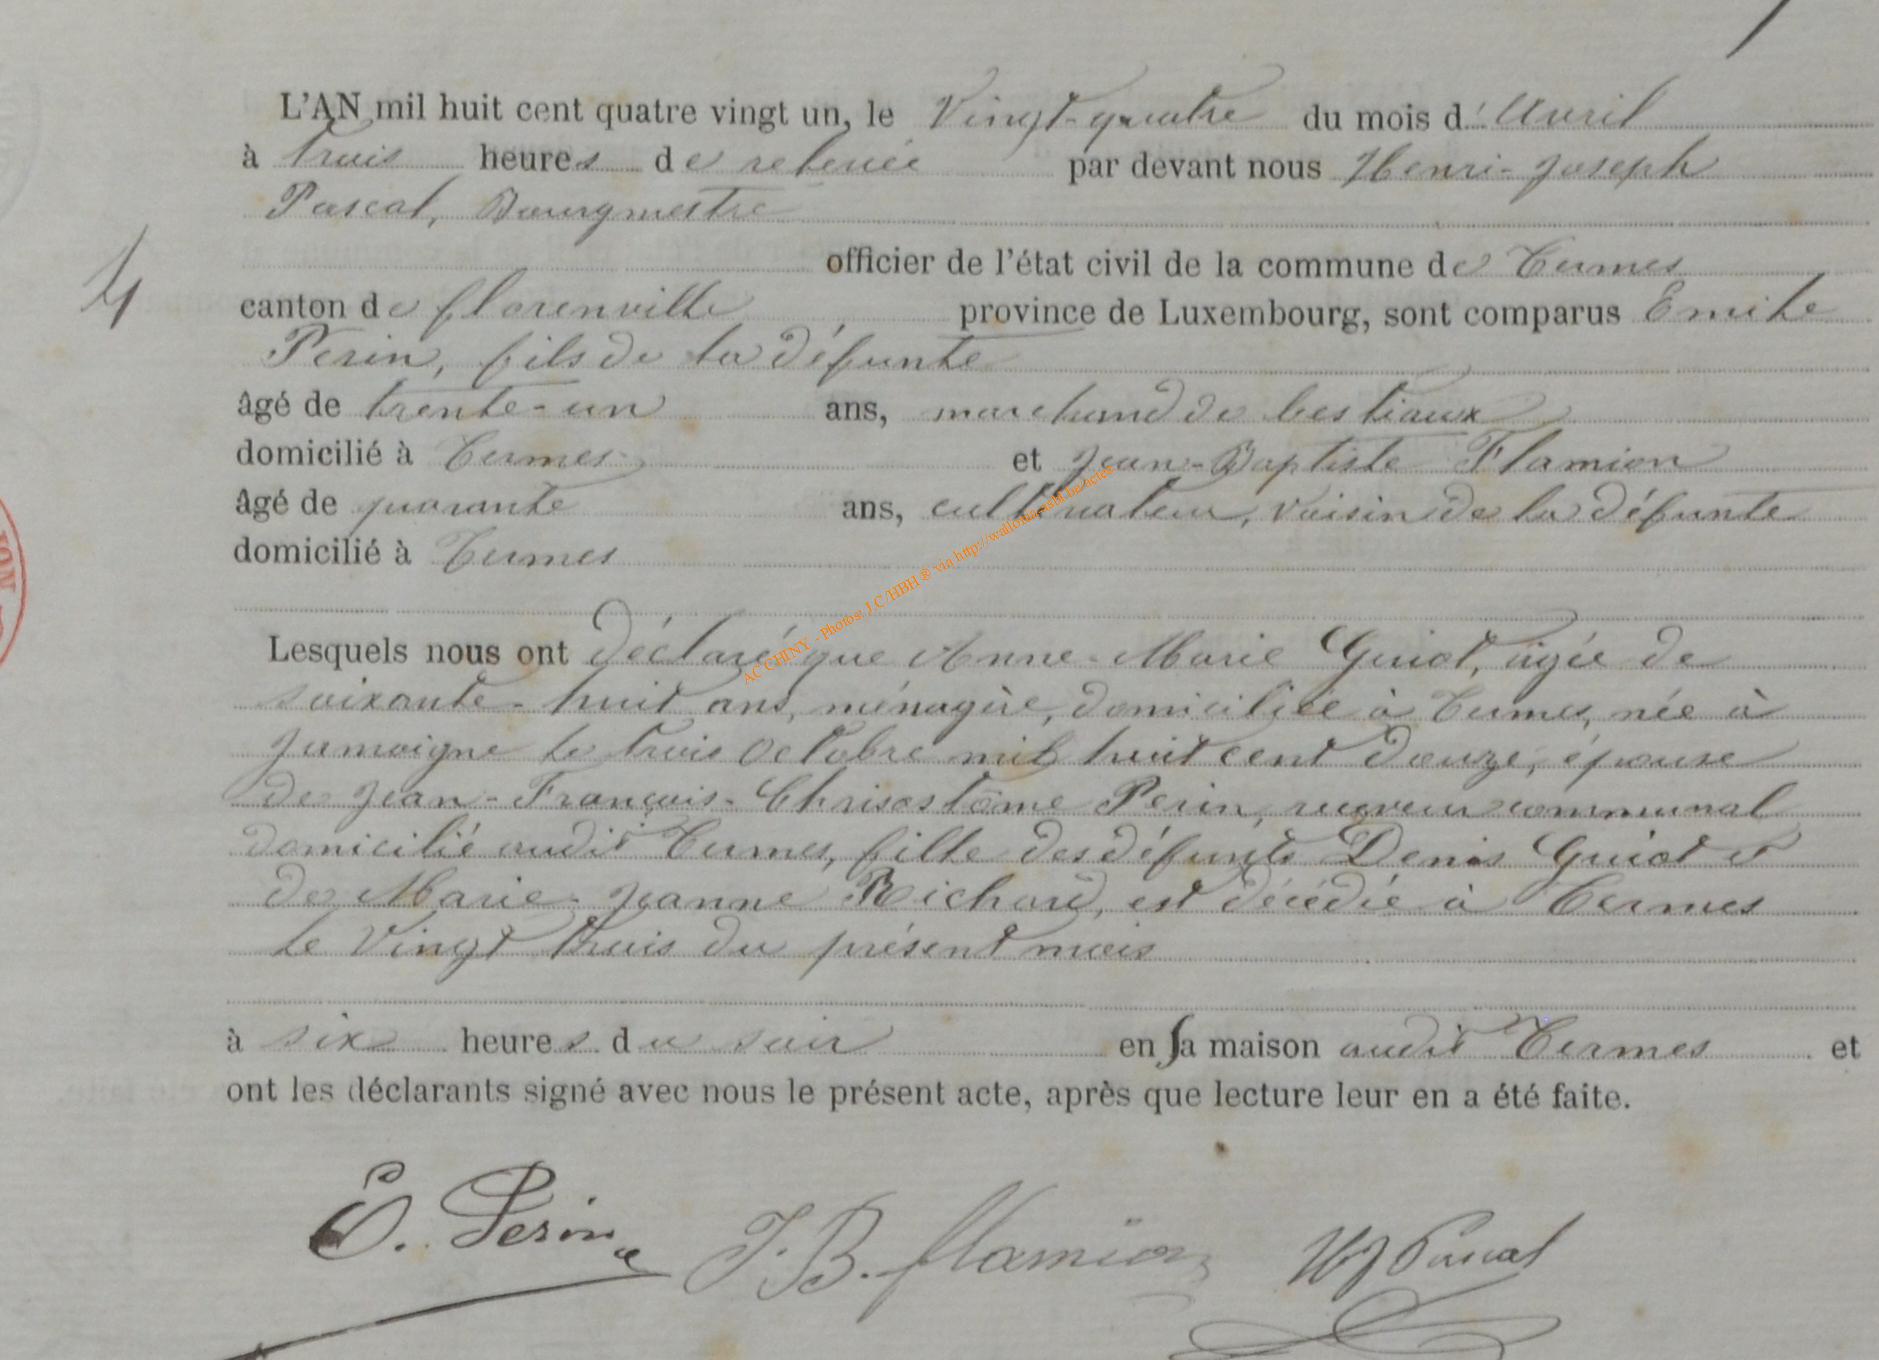 L'AN mil huit cent quatre vingt un, le Vingt-quatre du mois d'Avril
à trois heures de relevée par devant nous Henri-Joseph
Pascal, Bourgmestre
officier de l'état civil de la commune de Termes
4
canton de florenville province de Luxembourg, sont comparus Emile
Perin, fils de la défunte
âgé de trente-un ans, marchand de bestiaux
domicilié à Termes et Jean-Baptiste Flamion
âgé de quarante ans, cultivateur, voisin de la défunte
domicilié à Termes
AC CHINY - Photos: J.C/HBH ® via http://wallonia-asbl.be/actes
ION
Lesquels nous ont déclaré que Anne-Marie Guiot, âgée de
soixante-huit ans, ménagère, domiciliée à Termes, née à
Jamoigne le trois Octobre mil huit cent douze, épouse
de Jean-François-Chrisostôme Perin, receveur communal
domicilié audit Termes, fille des défunts Denis Guiot et
de Marie-Jeanne Richard, est décédée à Termes
le Vingt trois du présent mois
à six heures du soir en sa maison audit Termes et
ont les déclarants signé avec nous le présent acte, après que lecture leur en a été faite.
E. Perin J. B. flamion HJ Pascal